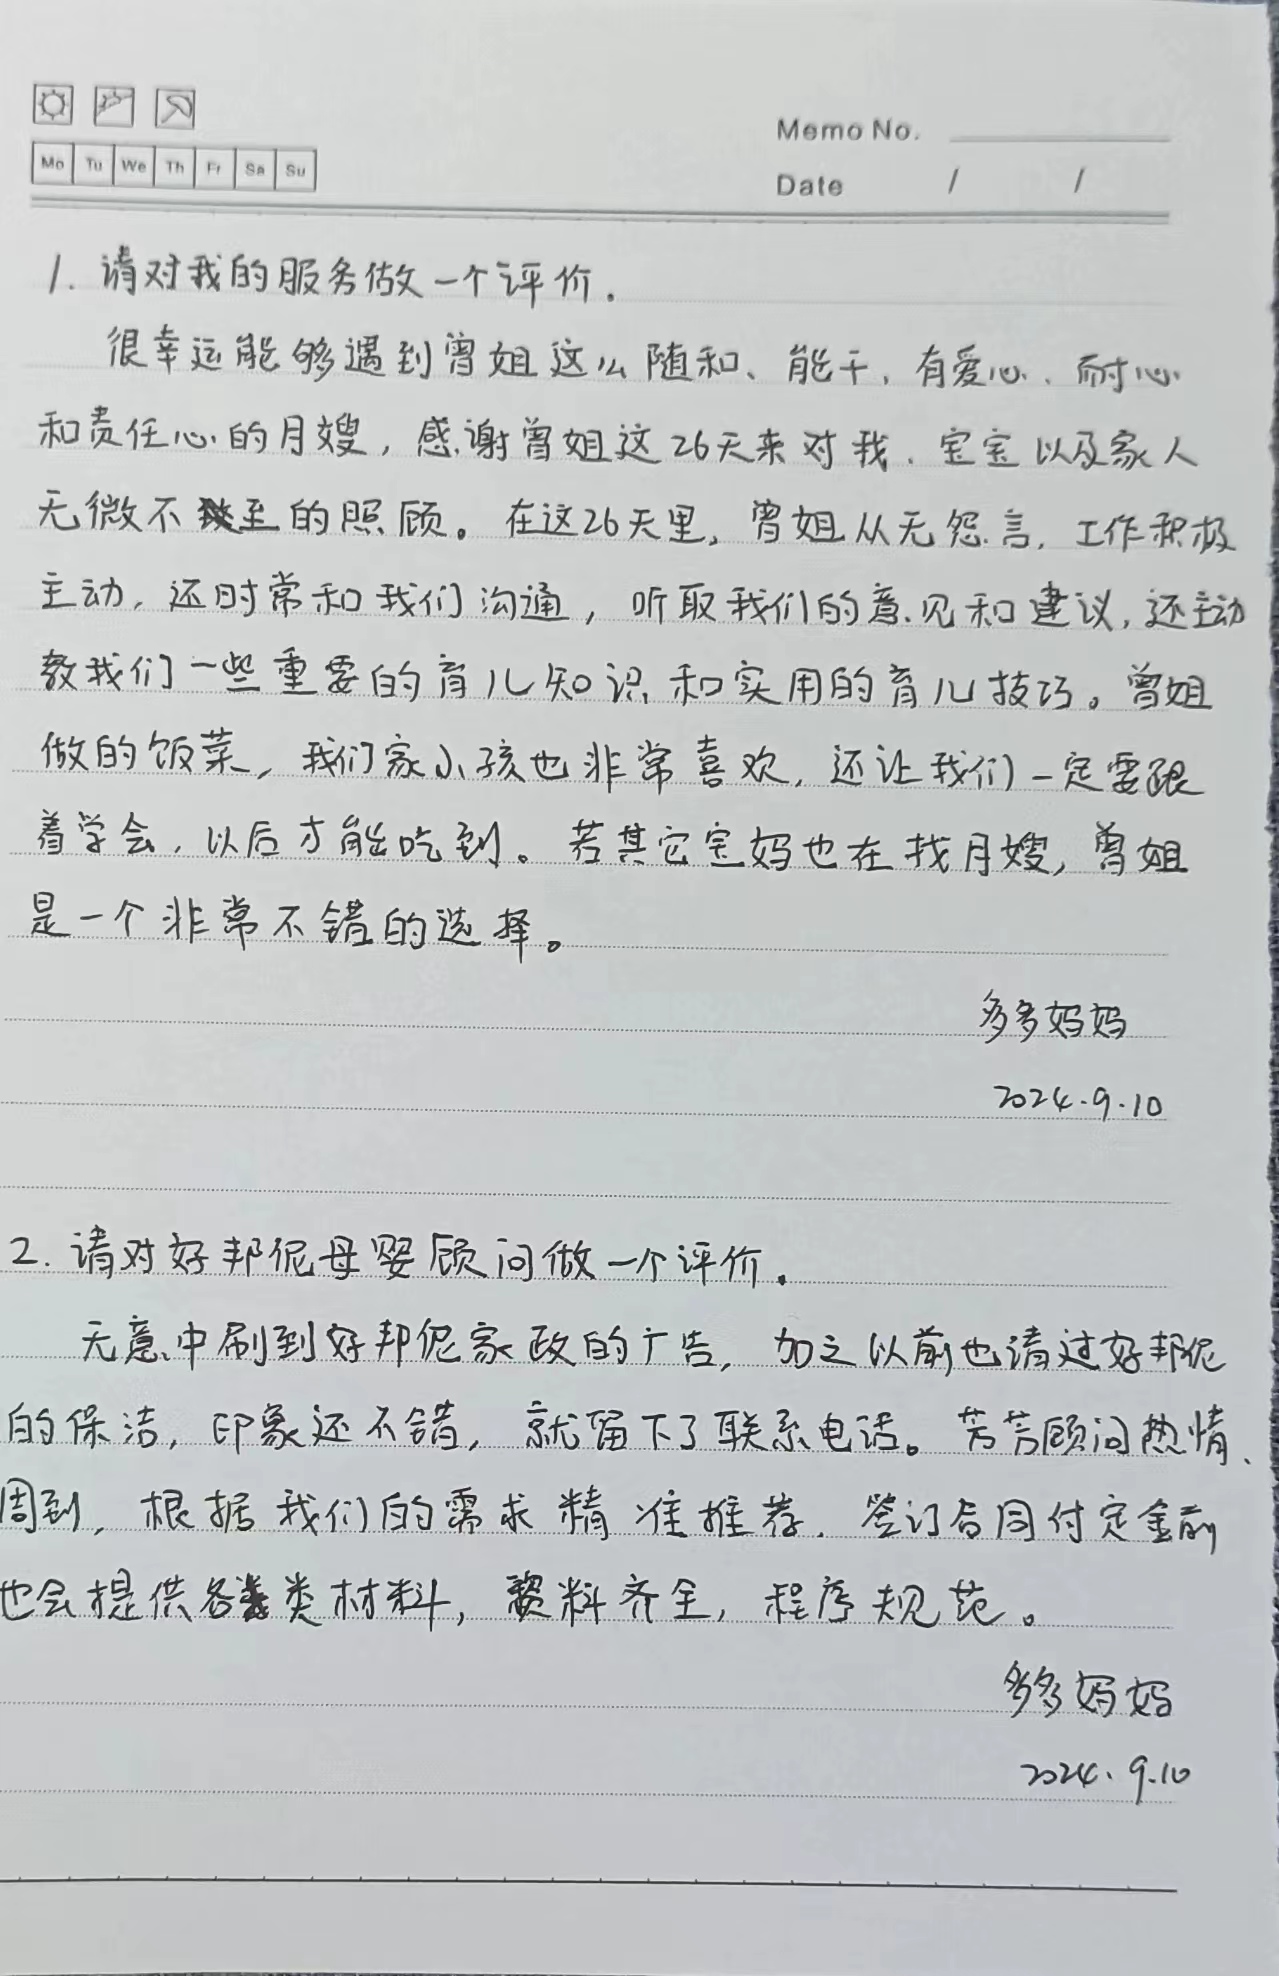 Memo No.
Mo Tu We Th Fr Sa Su
Date / /
1. 请对我的服务做一个评价.
很幸运能够遇到曾姐这么随和、能干、有爱心、耐心
和责任心的月嫂，感谢曾姐这26天来对我、宝宝以及家人
无微不至的照顾。在这26天里，曾姐从无怨言，工作积极
主动，还时常和我们沟通，听取我们的意见和建议，还主动
教我们一些重要的育儿知识和实用的育儿技巧。曾姐
做的饭菜，我们家小孩也非常喜欢，还让我们一定要跟
着学会，以后才能吃到。若其它宝妈也在找月嫂，曾姐
是一个非常不错的选择。
多多妈妈
2024.9.10
2. 请对好邦伲母婴顾问做一个评价.
无意中刷到好邦伲家政的广告，加之以前也请过好邦伲
的保洁，印象还不错，就留下了联系电话。芳芳顾问热情、
周到，根据我们的需求精准推荐，签订合同付定金前
也会提供各类材料，资料齐全，程序规范。
多多妈妈
2024.9.10